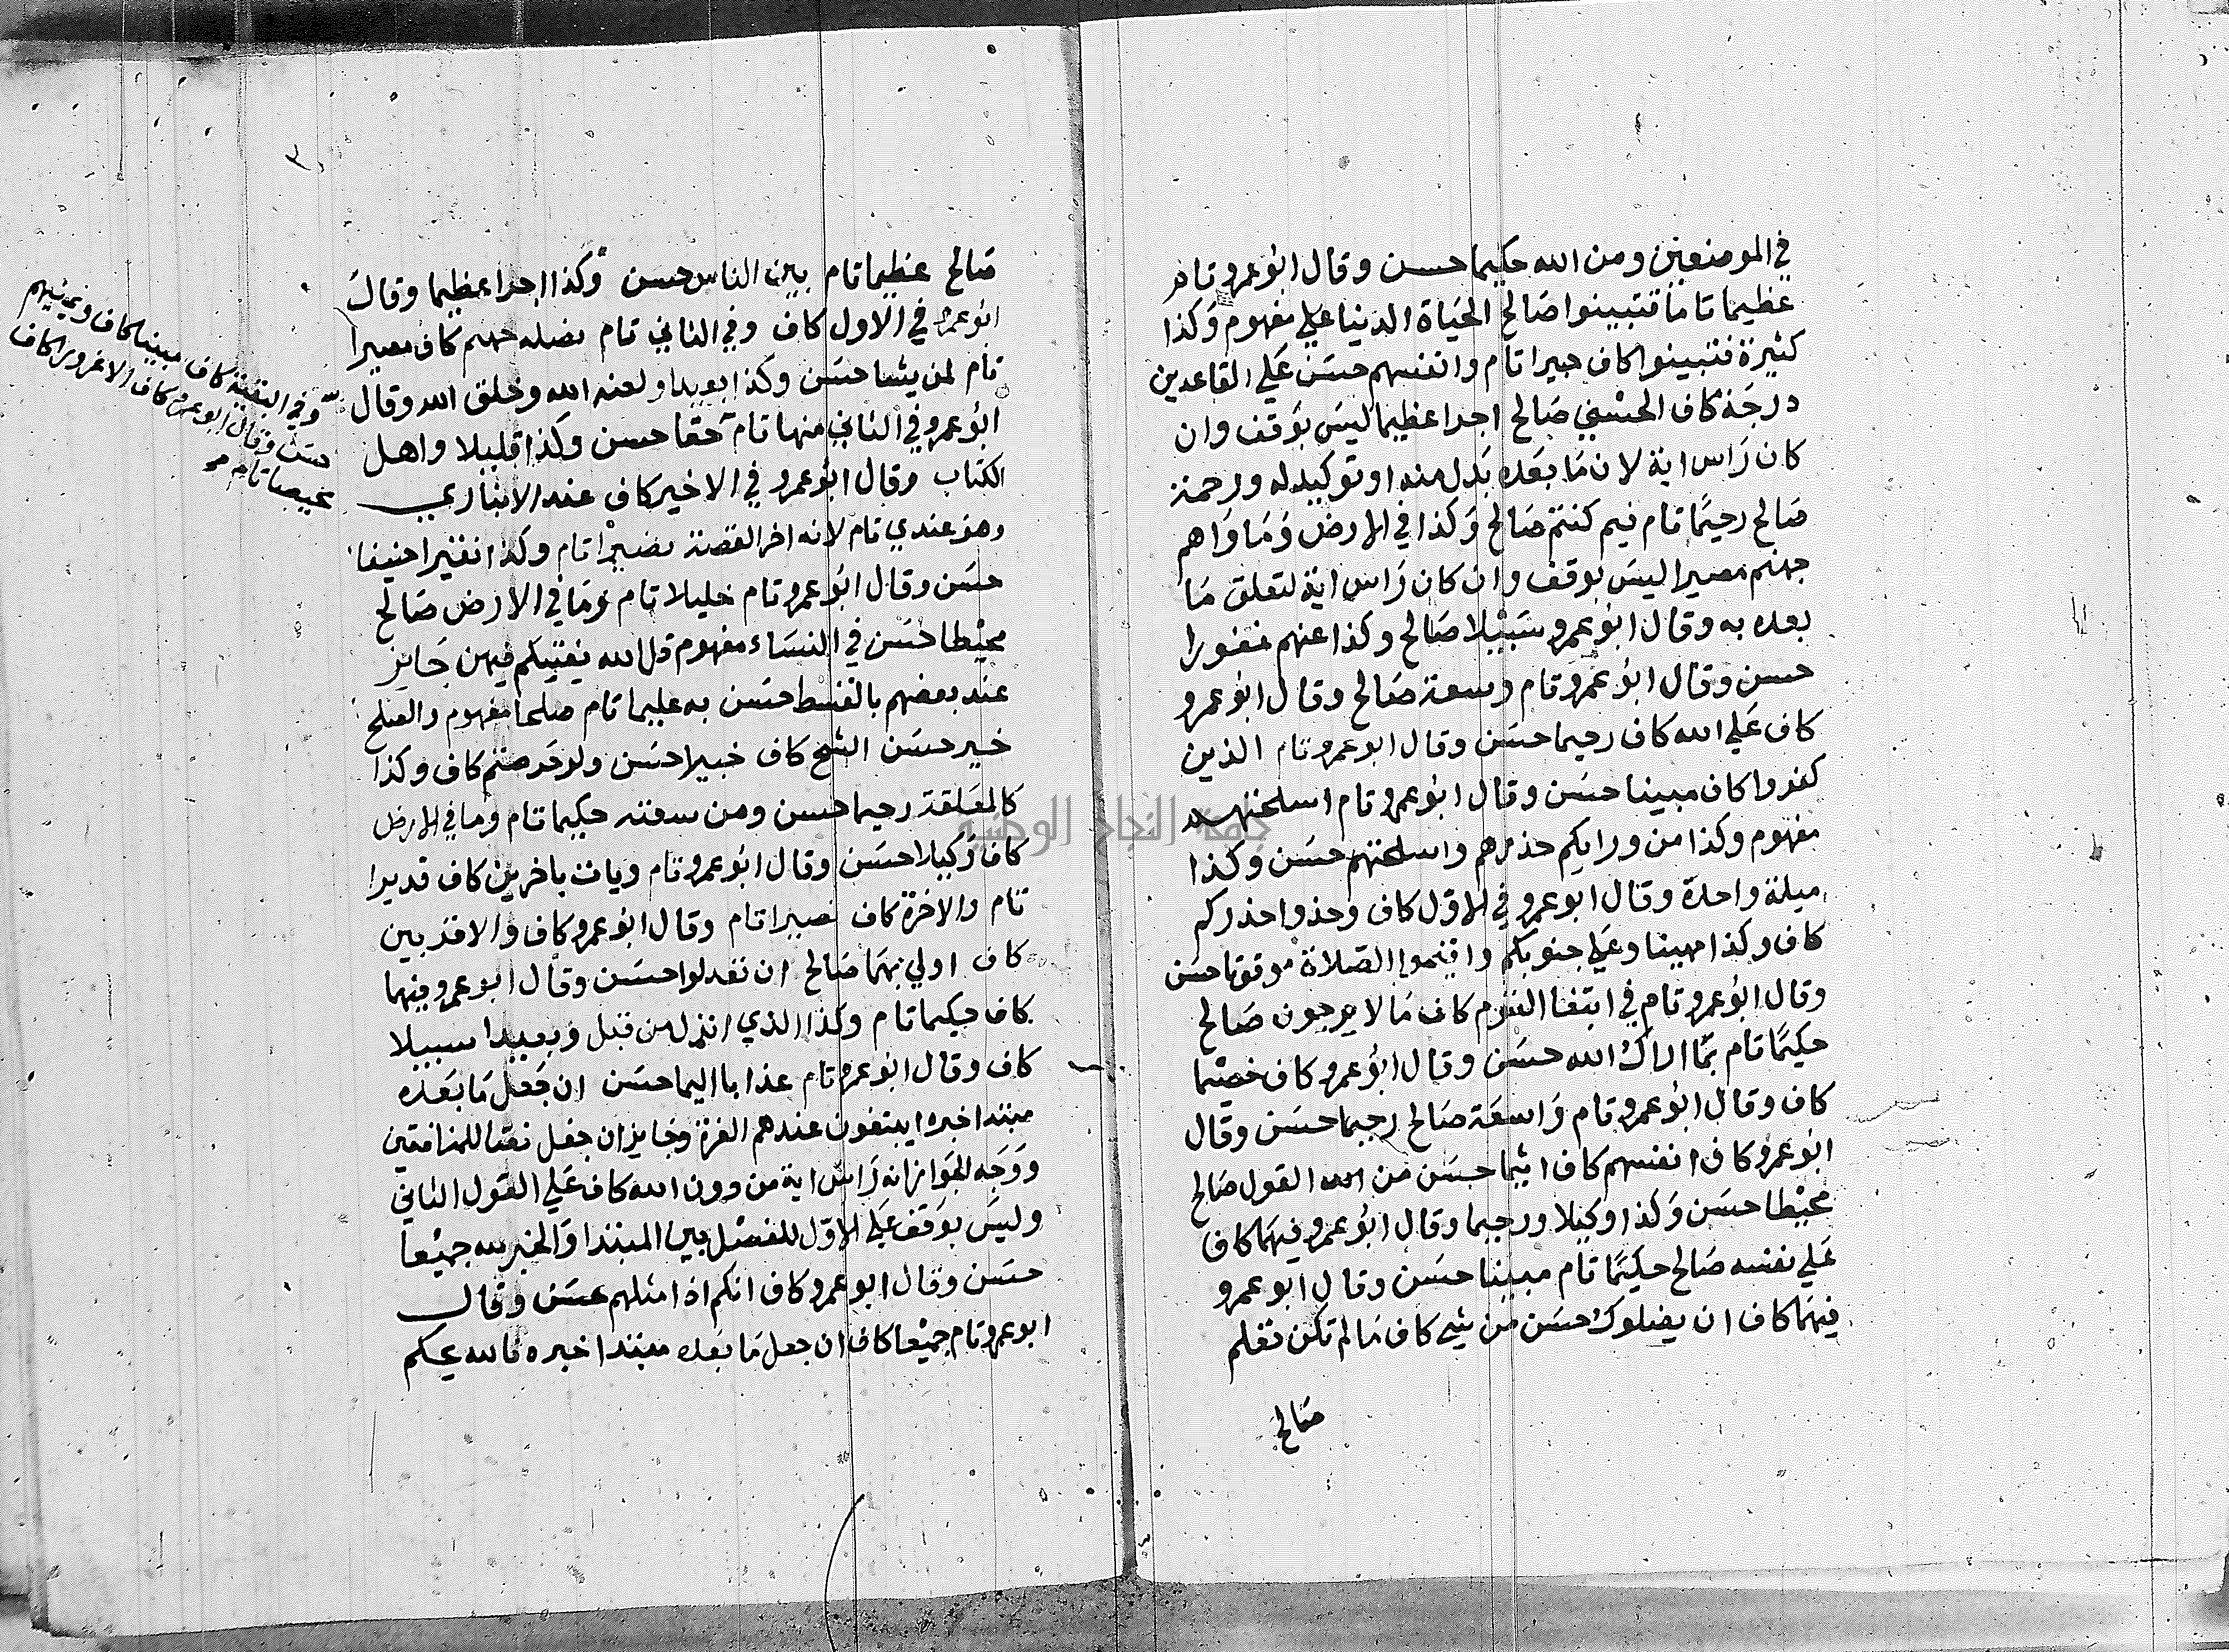 في الموضعين ومن الله حكيما حسن وقال ابو عمرو تام
عظيما تام فتبينوا صَالح الحَياة الدنيا علي مفهوم وَكذا
كثيرة فتبينوا كاف خبيرا تام وانفسهم حسَن عَلي القاعدين
درجَة كاف الحسْني صَالح اجرا عظيما ليسَ بوَقف وان
كان رَاس اية لان مَا بعَده بَدل منه او توكيد له ورحمة
صَالح رحيمًا تام فيم كنتم صَالح وَكذا في الارض وَمَاوَاهم
جهنم مصيرا ليسَ بوقف وان كان رَاس اية لتعلق مَا
بعده به وقال ابو عمرو سَبيْلا صَالح وكذا عنهم غفورا
حسن وقال ابو عمرو تام وسعة صَالح وقال ابو عمرو
كاف عَلي الله كاف رحيما حسَن وقال ابو عمرو تام الذين
كفروا كاف مبينا حسَن وقال ابو عمرو تام اسلحتهم
مفهوم وكذا من ورايكم حذرهم واسلحتهم حسَن وكذا
ميلة واحدة وقال ابو عمرو في الاوّل كاف وخذوا حذركم
كاف وكذا مهينا وعَلي جنوبكم واقيموا الصّلاة موقوتا حسَن
وقال ابو عمرو تام في ابتغا القوم كاف مَا لا يرجون صَالح
حكيمًا تام بمَا اراك الله حسَن وقال ابو عمرو كاف خصيْما
كاف وقال ابو عمرو تام وَاسعَة صَالح رحيما حسَن وقال
ابو عمرو كاف انفسهم كاف اثيما حسَن من القول صَالح
محيْطا حسَن وَكذا وكيلا ورحيما وقال ابو عمرو فيهمَا كاف
عَلي نفسه صَالح حكيمًا تام مبينا حسَن وقال ابو عمرو
فيهمَا كاف ان يضلوك حسَن من شي كاف مَا لم تكن تعلم
صَالح
٣
صَالح عظيما تام بين الناس حسن وكذا اجرا عظيما وقالَ
ابو عمرو في الاول كاف وفي الثاني تام نصله جهنم كاف مصيرا
تام لمن يشا حسَن وكذا بعيدا ولعنه الله وخلق الله وقال
ابو عمرو في الثاني منها تام حَقا حسن وكذا قليلا واهل
الكتاب وقال ابو عمرو في الاخير كاف عند الانباري
وهو عندي تام لانه اخر القصة نصيرا تام وكذا نقيرا حنيفا
حسَن وقال ابو عمرو تام خليلا تام وَمَا في الارض صَالح
محيْطا حسَن في النسَاء مفهوم قل الله يفتيكم فيهن جَايز
عند بعضهم بالقسط حسَن به عليما تام صلحا مفهوم والصلح
خير حسَن الشح كاف خبيرا حسَن ولو حَرصتم كاف وكذا
كالمعَلقة رحيما حسن ومن سعته حكيما تام وما في الارض
كاف وَكيلا حسَن وقال ابو عمرو تام ويات باخرين كاف قديرا
تام والاخرة كاف بصيرا تام وقال ابو عمرو كاف وَالاقربين
كاف اولي بهمَا صَالح ان تعدلوا حسَن وقال ابو عمرو فيهما
كاف حكيما تام وكذا الذي انزل من قبل وبعيدا سبيلا
كاف وقال ابو عمرو تام عذابا اليما حسَن ان جَعل مَا بَعده
مبتدا خبره ايبتغون عندهم العزة وجَايز ان جعل نعتا للمنافقين
ووَجه الجوَاز انه رَاس اية من دون الله كاف عَلي القول الثاني
وليسَ بوَقف عَلي الاوّل للفصْل بين المبتدا وَالخبر لله جميْعا
حسَن وقال ابو عمرو كاف انكم اذا مثلهم حسَن وقال
ابو عمرو تام جميْعا كاف ان جعل مَا بَعده مبتدا خبره فالله يحكم
وفي البقية كاف مبينا كاف ويمنيهم
حسَن وقال ابو عمرو كاف الا غرورا كاف
محيصا تام
جامعة النجاح الوطنية